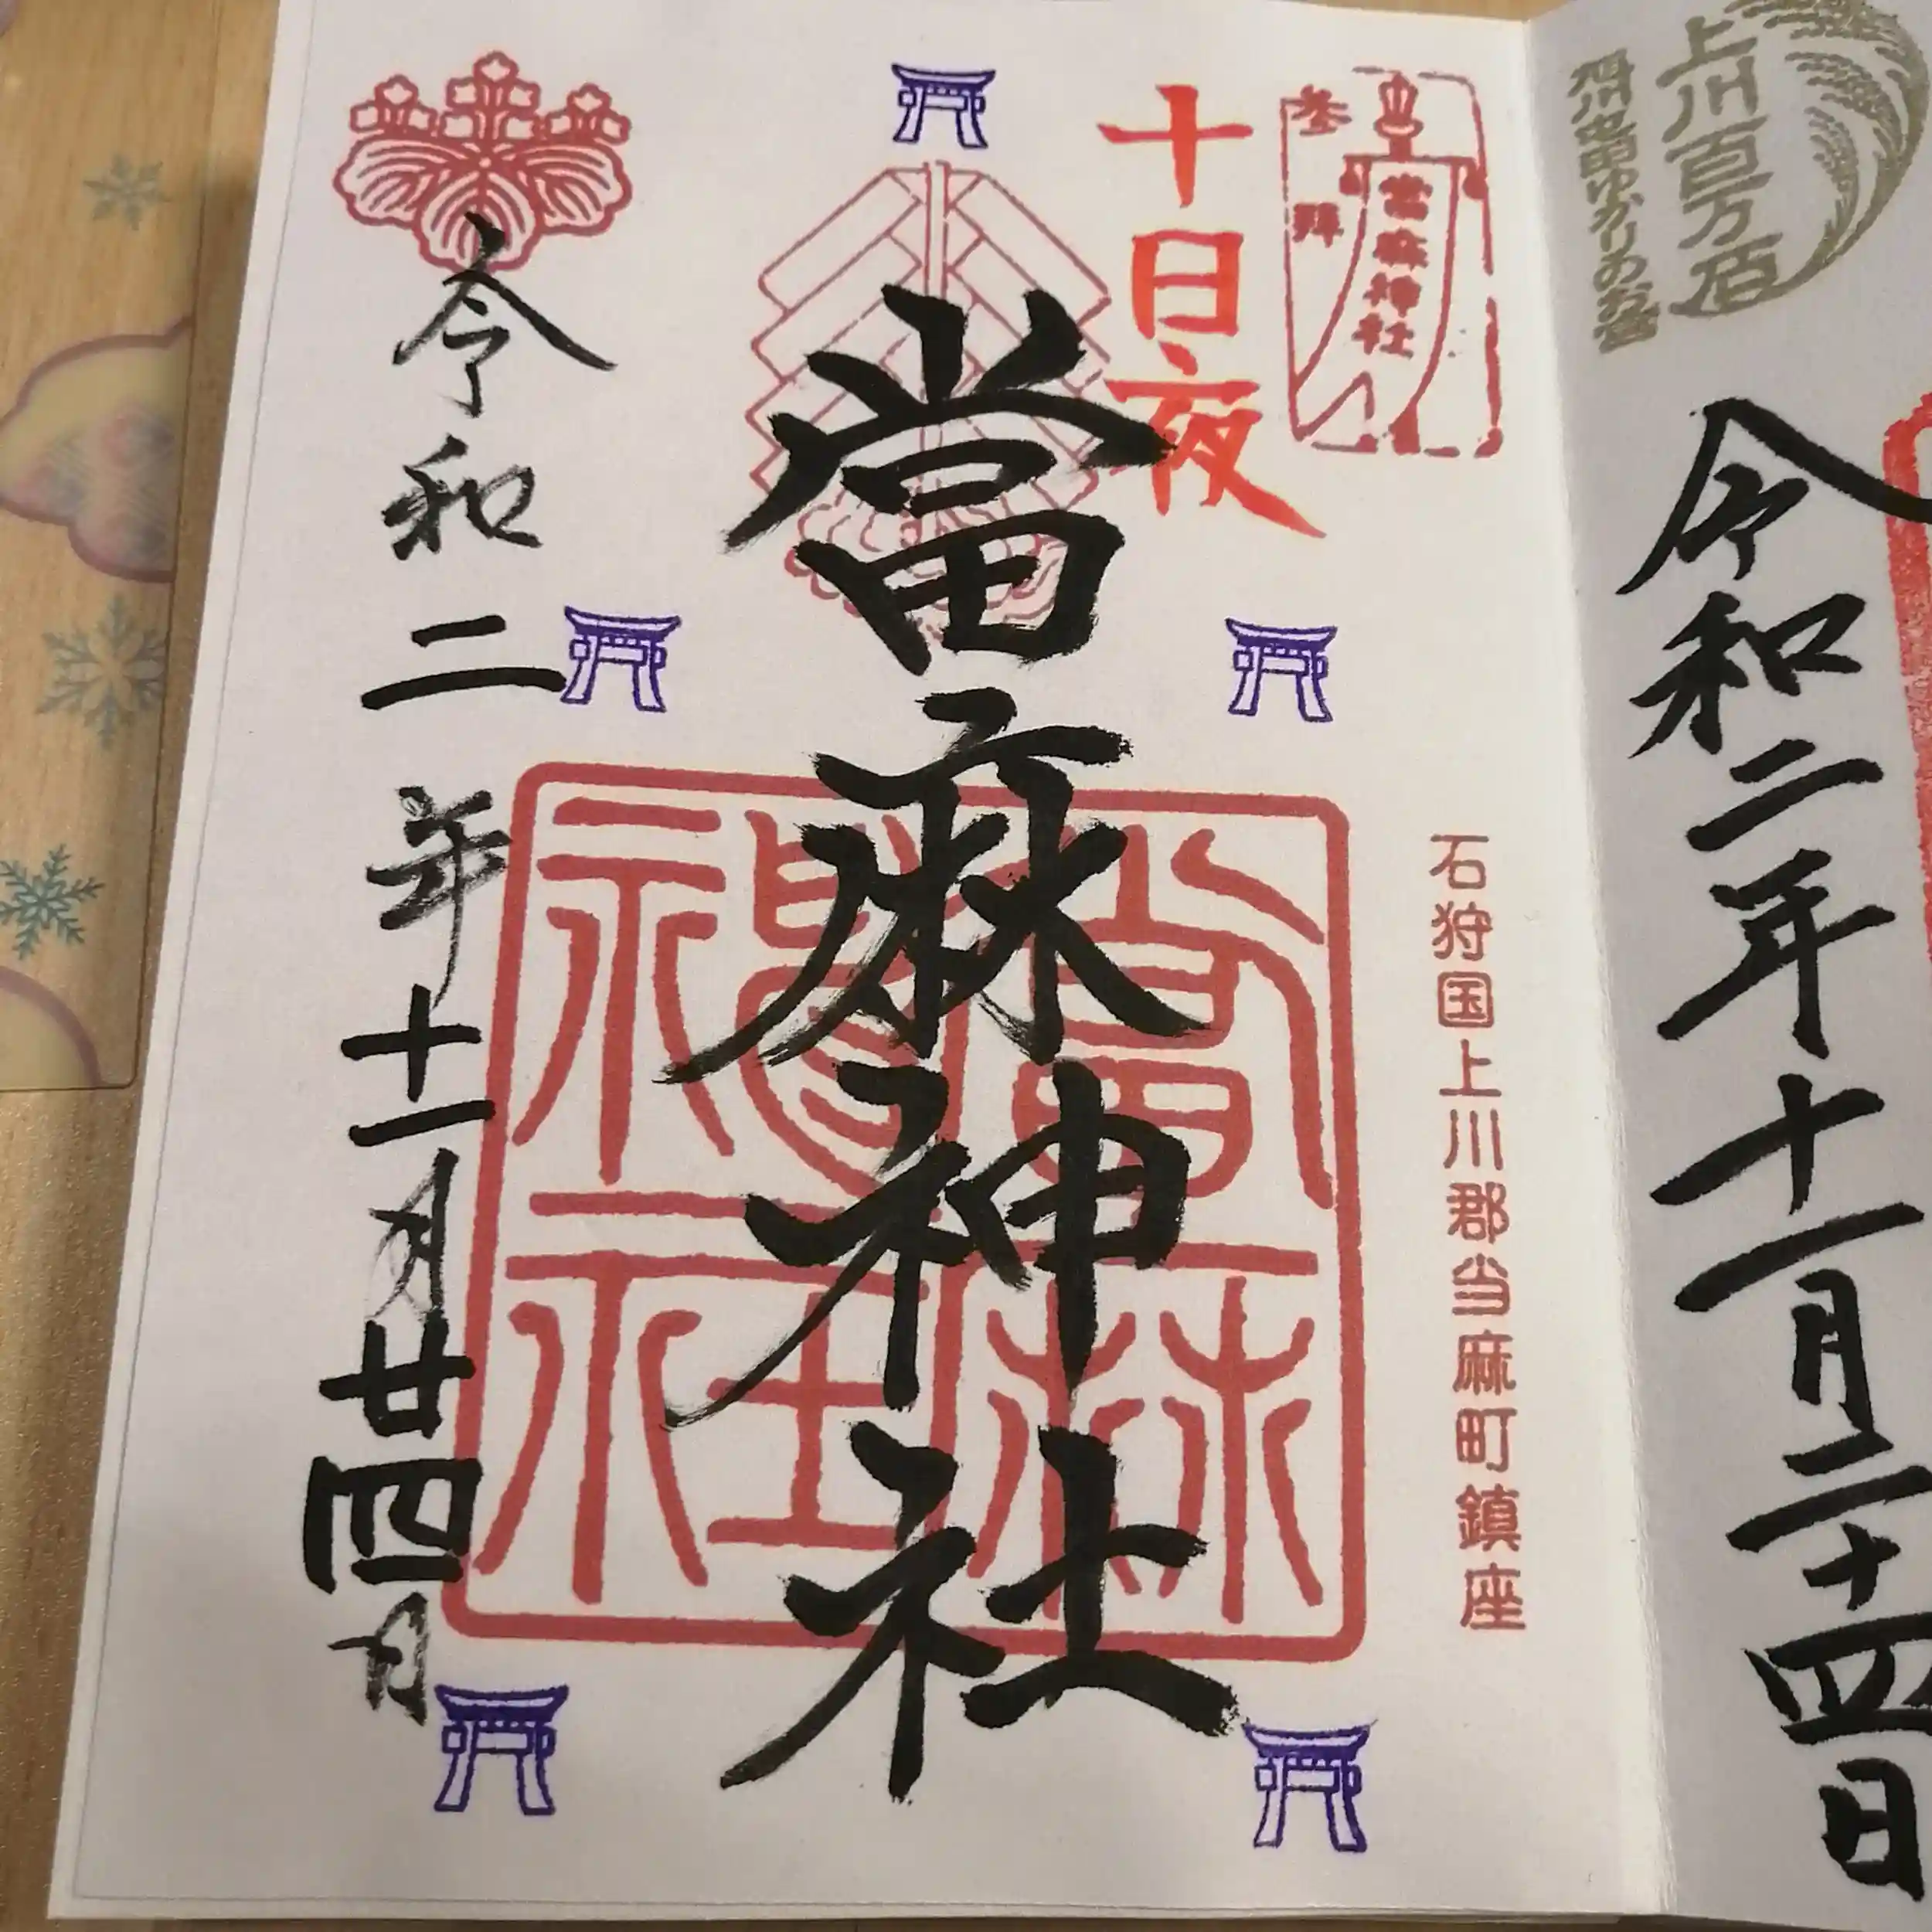 上川百万石
旭川忠別ゆかりのお酒
令和二年十一月二十四日
参拝
當麻神社
十日夜
石狩国上川郡当麻町鎮座
當麻神社
當麻神社
令和二年十一月廿四日